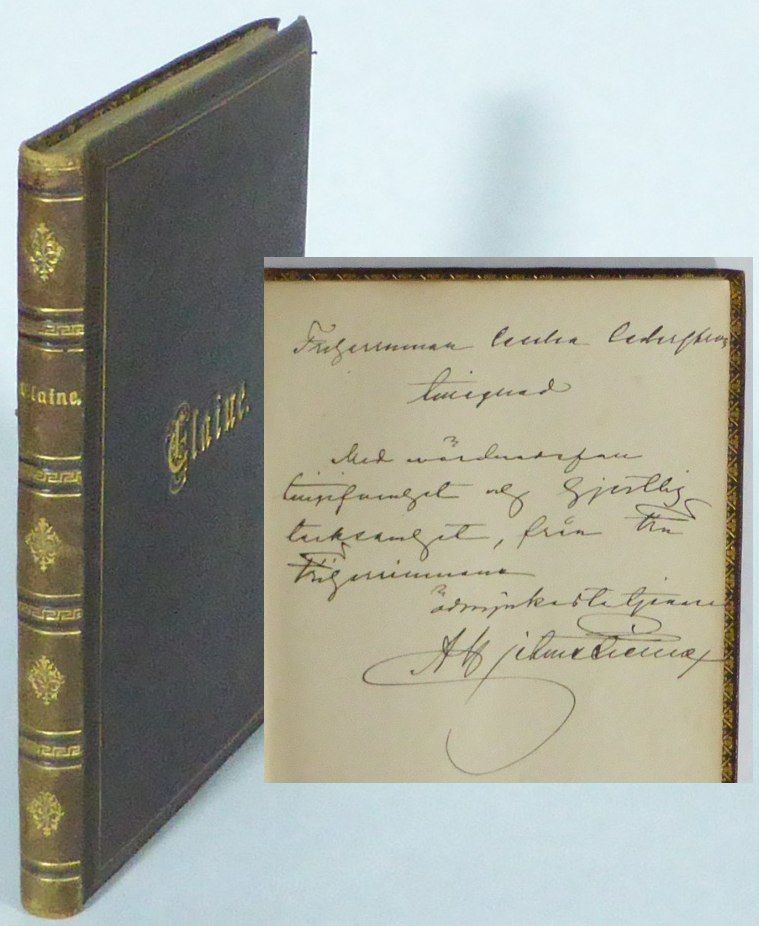 Elaine.
Elaine.
Friherrinnan Cecilia Cederström
tillegnad
Med wördnadsfull
tillgifvenhet och hjertlig
tacksamhet, från
Friherrinnans
ödmjukaste tjenare
A Hjelmstierna